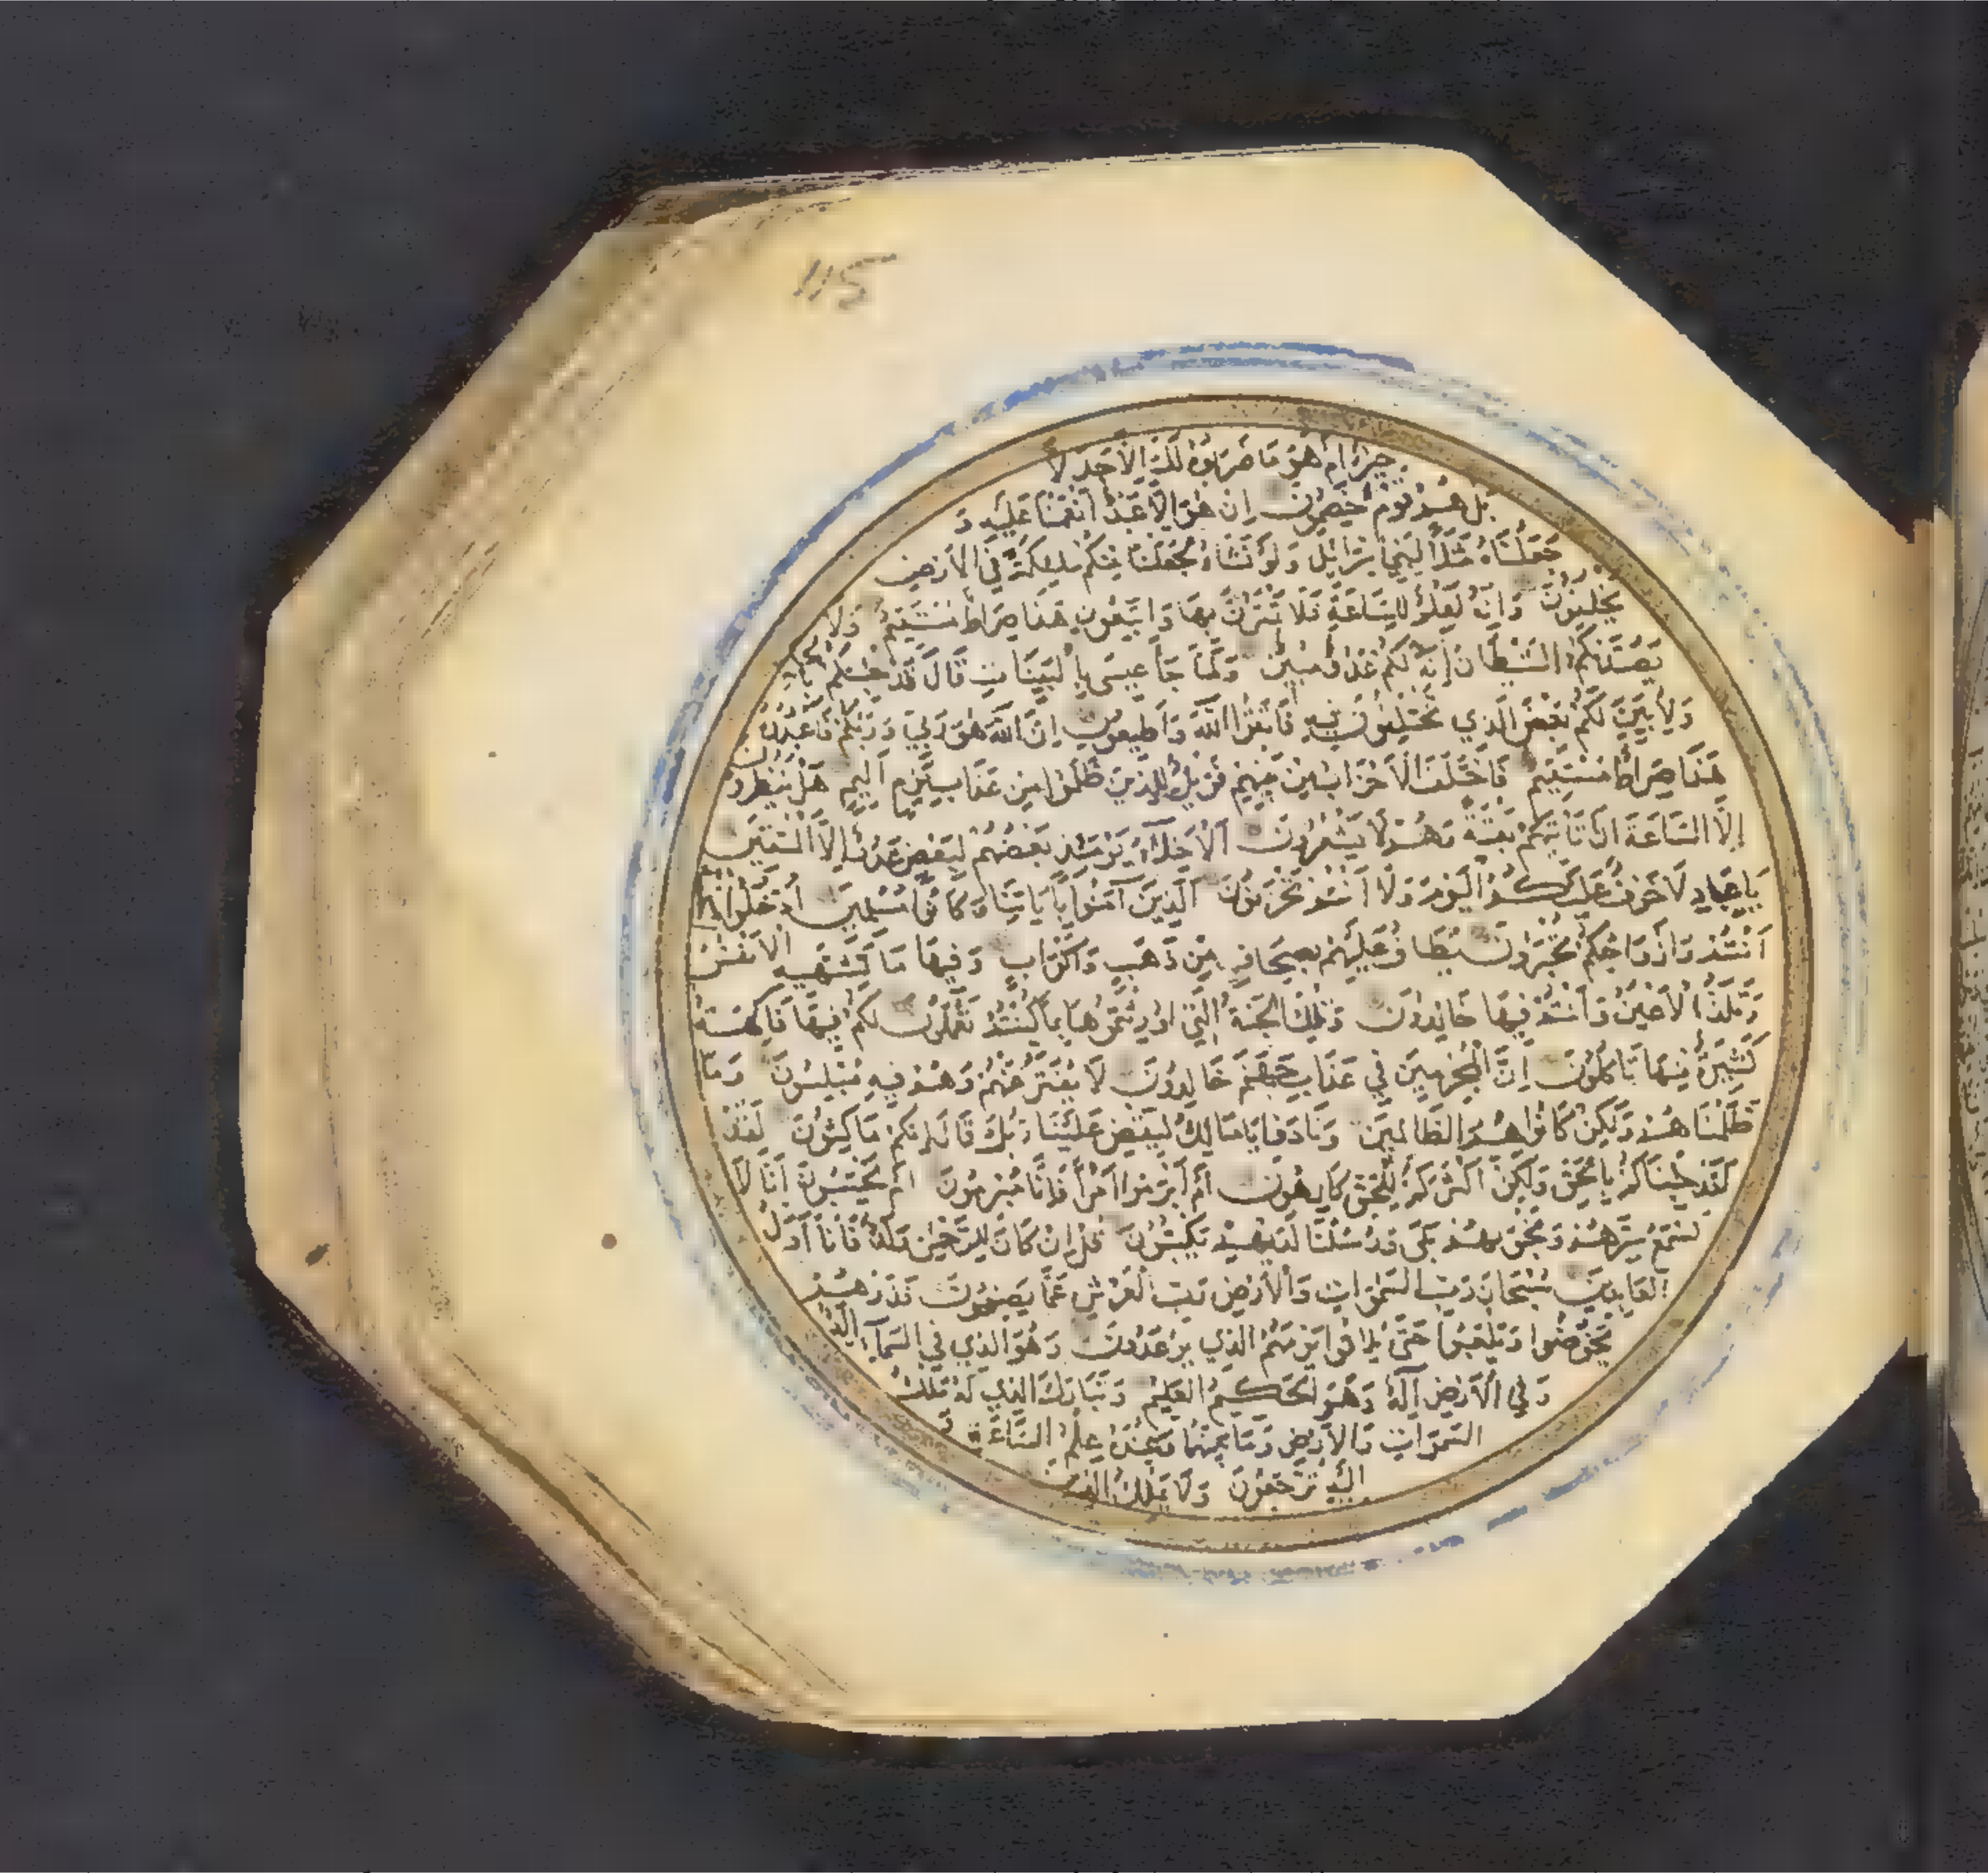 115
خير ام هو ما ضربوه لك الا جدلا
بل هم قوم خصمون ان هو الا عبد انعمنا عليه و
جعلناه مثلا لبني اسرائيل ولو نشاء لجعلنا منكم ملائكة في الارض
يخلفون وانه لعلم للساعة فلا تمترن بها واتبعون هذا صراط مستقيم ولا
يصدنكم الشيطان انه لكم عدو مبين ولما جا عيسى بالبينات قال قد جئتكم
ولابين لكم بعض الذي تختلفون فيه فاتقوا الله واطيعون ان الله هو ربي وربكم فاعبدوه
هذا صراط مستقيم فاختلف الاحزاب من بينهم فويل للذين ظلموا من عذاب يوم اليم هل ينظرون
الا الساعة ان تاتيهم بغتة وهم لا يشعرون الاخلاء يومئذ بعضهم لبعض عدو الا المتقين
يا عباد لا خوف عليكم اليوم ولا انتم تحزنون الذين آمنوا باياتنا وكانوا مسلمين ادخلوا
انتم وازواجكم تحبرون يطاف عليهم بصحاف من ذهب واكواب وفيها ما تشتهيه الانفس
وتلذ الاعين وانتم فيها خالدون وتلك الجنة التي اورثتموها بما كنتم تعملون لكم فيها فاكهة
كثيرة منها تاكلون ان المجرمين في عذاب جهنم خالدون لا يفتر عنهم وهم فيه مبلسون وما
ظلمناهم ولكن كانوا هم الظالمين ونادوا يا مالك ليقض علينا ربك قال انكم ماكثون لقد
لقد جئناكم بالحق ولكن اكثركم للحق كارهون ام ابرموا امرا فانا مبرمون ام يحسبون انا لا
نسمع سرهم ونجويهم بلى ورسلنا لديهم يكتبون قل ان كان للرحمن ولد فانا اول
العابدين سبحان رب السموات والارض رب العرش عما يصفون فذرهم
يخوضوا ويلعبوا حتى يلاقوا يومهم الذي يوعدون وهو الذي في السماء اله
وفي الارض اله وهو الحكيم العليم وتبارك الذي له ملك
السموات والارض وما بينهما وعنده علم الساعة و
اليه ترجعون ولا يملك الذين